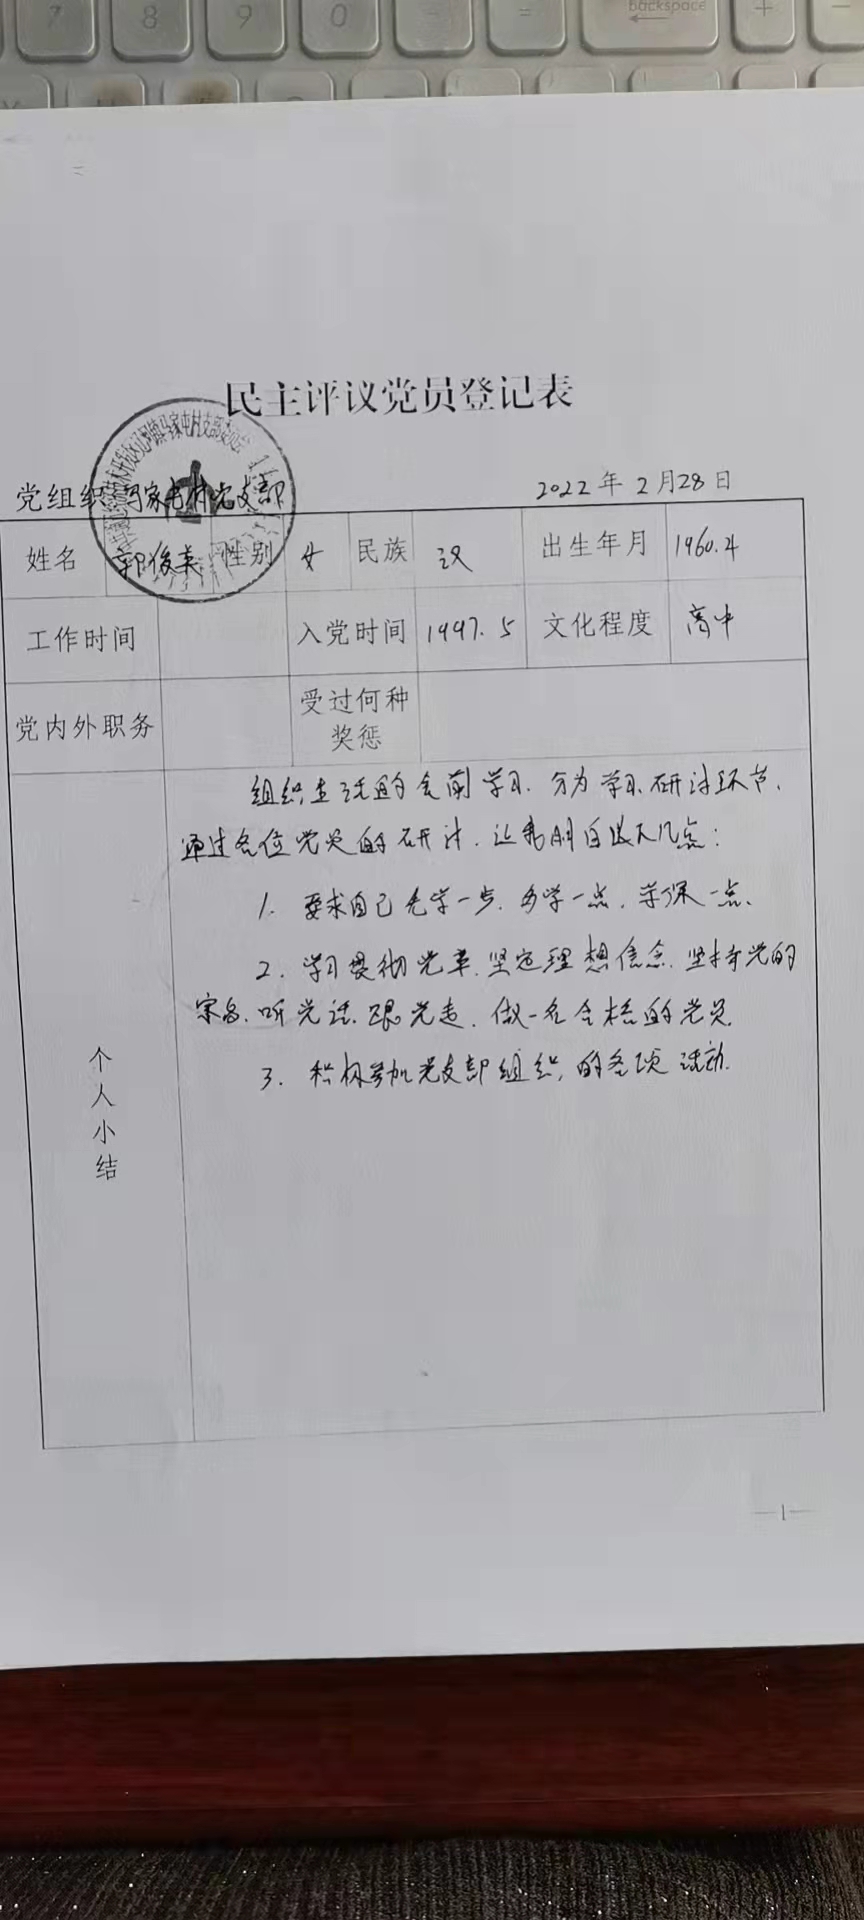 7 8 9 0 - = backspace + -
民主评议党员登记表
党组织 冯家屯村党支部 2022年2月28日
姓名 郭俊英 性别 女 民族 汉 出生年月 1960.4
工作时间 入党时间 1997.5 文化程度 高中
党内外职务 受过何种
奖惩
组织生活的会前学习.分为学习研讨环节.
通过各位党员的研讨.让我明白以下几点:
1. 要求自己先学一步.多学一点.学深一点.
2. 学习贯彻党章.坚定理想信念.坚持党的
宗旨.听党话.跟党走.做一名合格的党员.
3. 积极参加党支部组织的各项活动.
个人小结
—1—